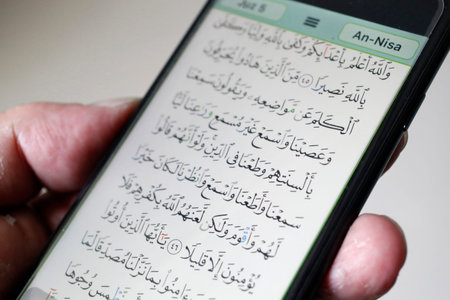 Juz 5 An-Nisa
وَٱللَّهُ أَعْلَمُ بِأَعْدَآئِكُمْ وَكَفَىٰ بِٱللَّهِ وَلِيًّا وَكَفَىٰ
بِٱللَّهِ نَصِيرًا ٤٥ مِّنَ ٱلَّذِينَ هَادُوا۟ يُحَرِّفُونَ
ٱلْكَلِمَ عَن مَّوَاضِعِهِۦ وَيَقُولُونَ سَمِعْنَا
وَعَصَيْنَا وَٱسْمَعْ غَيْرَ مُسْمَعٍ وَرَٰعِنَا لَيًّۢا
بِأَلْسِنَتِهِمْ وَطَعْنًا فِى ٱلدِّينِ وَلَوْ أَنَّهُمْ قَالُوا۟
سَمِعْنَا وَأَطَعْنَا وَٱسْمَعْ وَٱنظُرْنَا لَكَانَ خَيْرًا
لَّهُمْ وَأَقْوَمَ وَلَٰكِن لَّعَنَهُمُ ٱللَّهُ بِكُفْرِهِمْ فَلَا
يُؤْمِنُونَ إِلَّا قَلِيلًا ٤٦ يَٰٓأَيُّهَا ٱلَّذِينَ أُوتُوا۟
ءَامِنُوا۟ بِمَا نَزَّلْنَا مُصَدِّقًا لِّمَا
وُجُوهًا